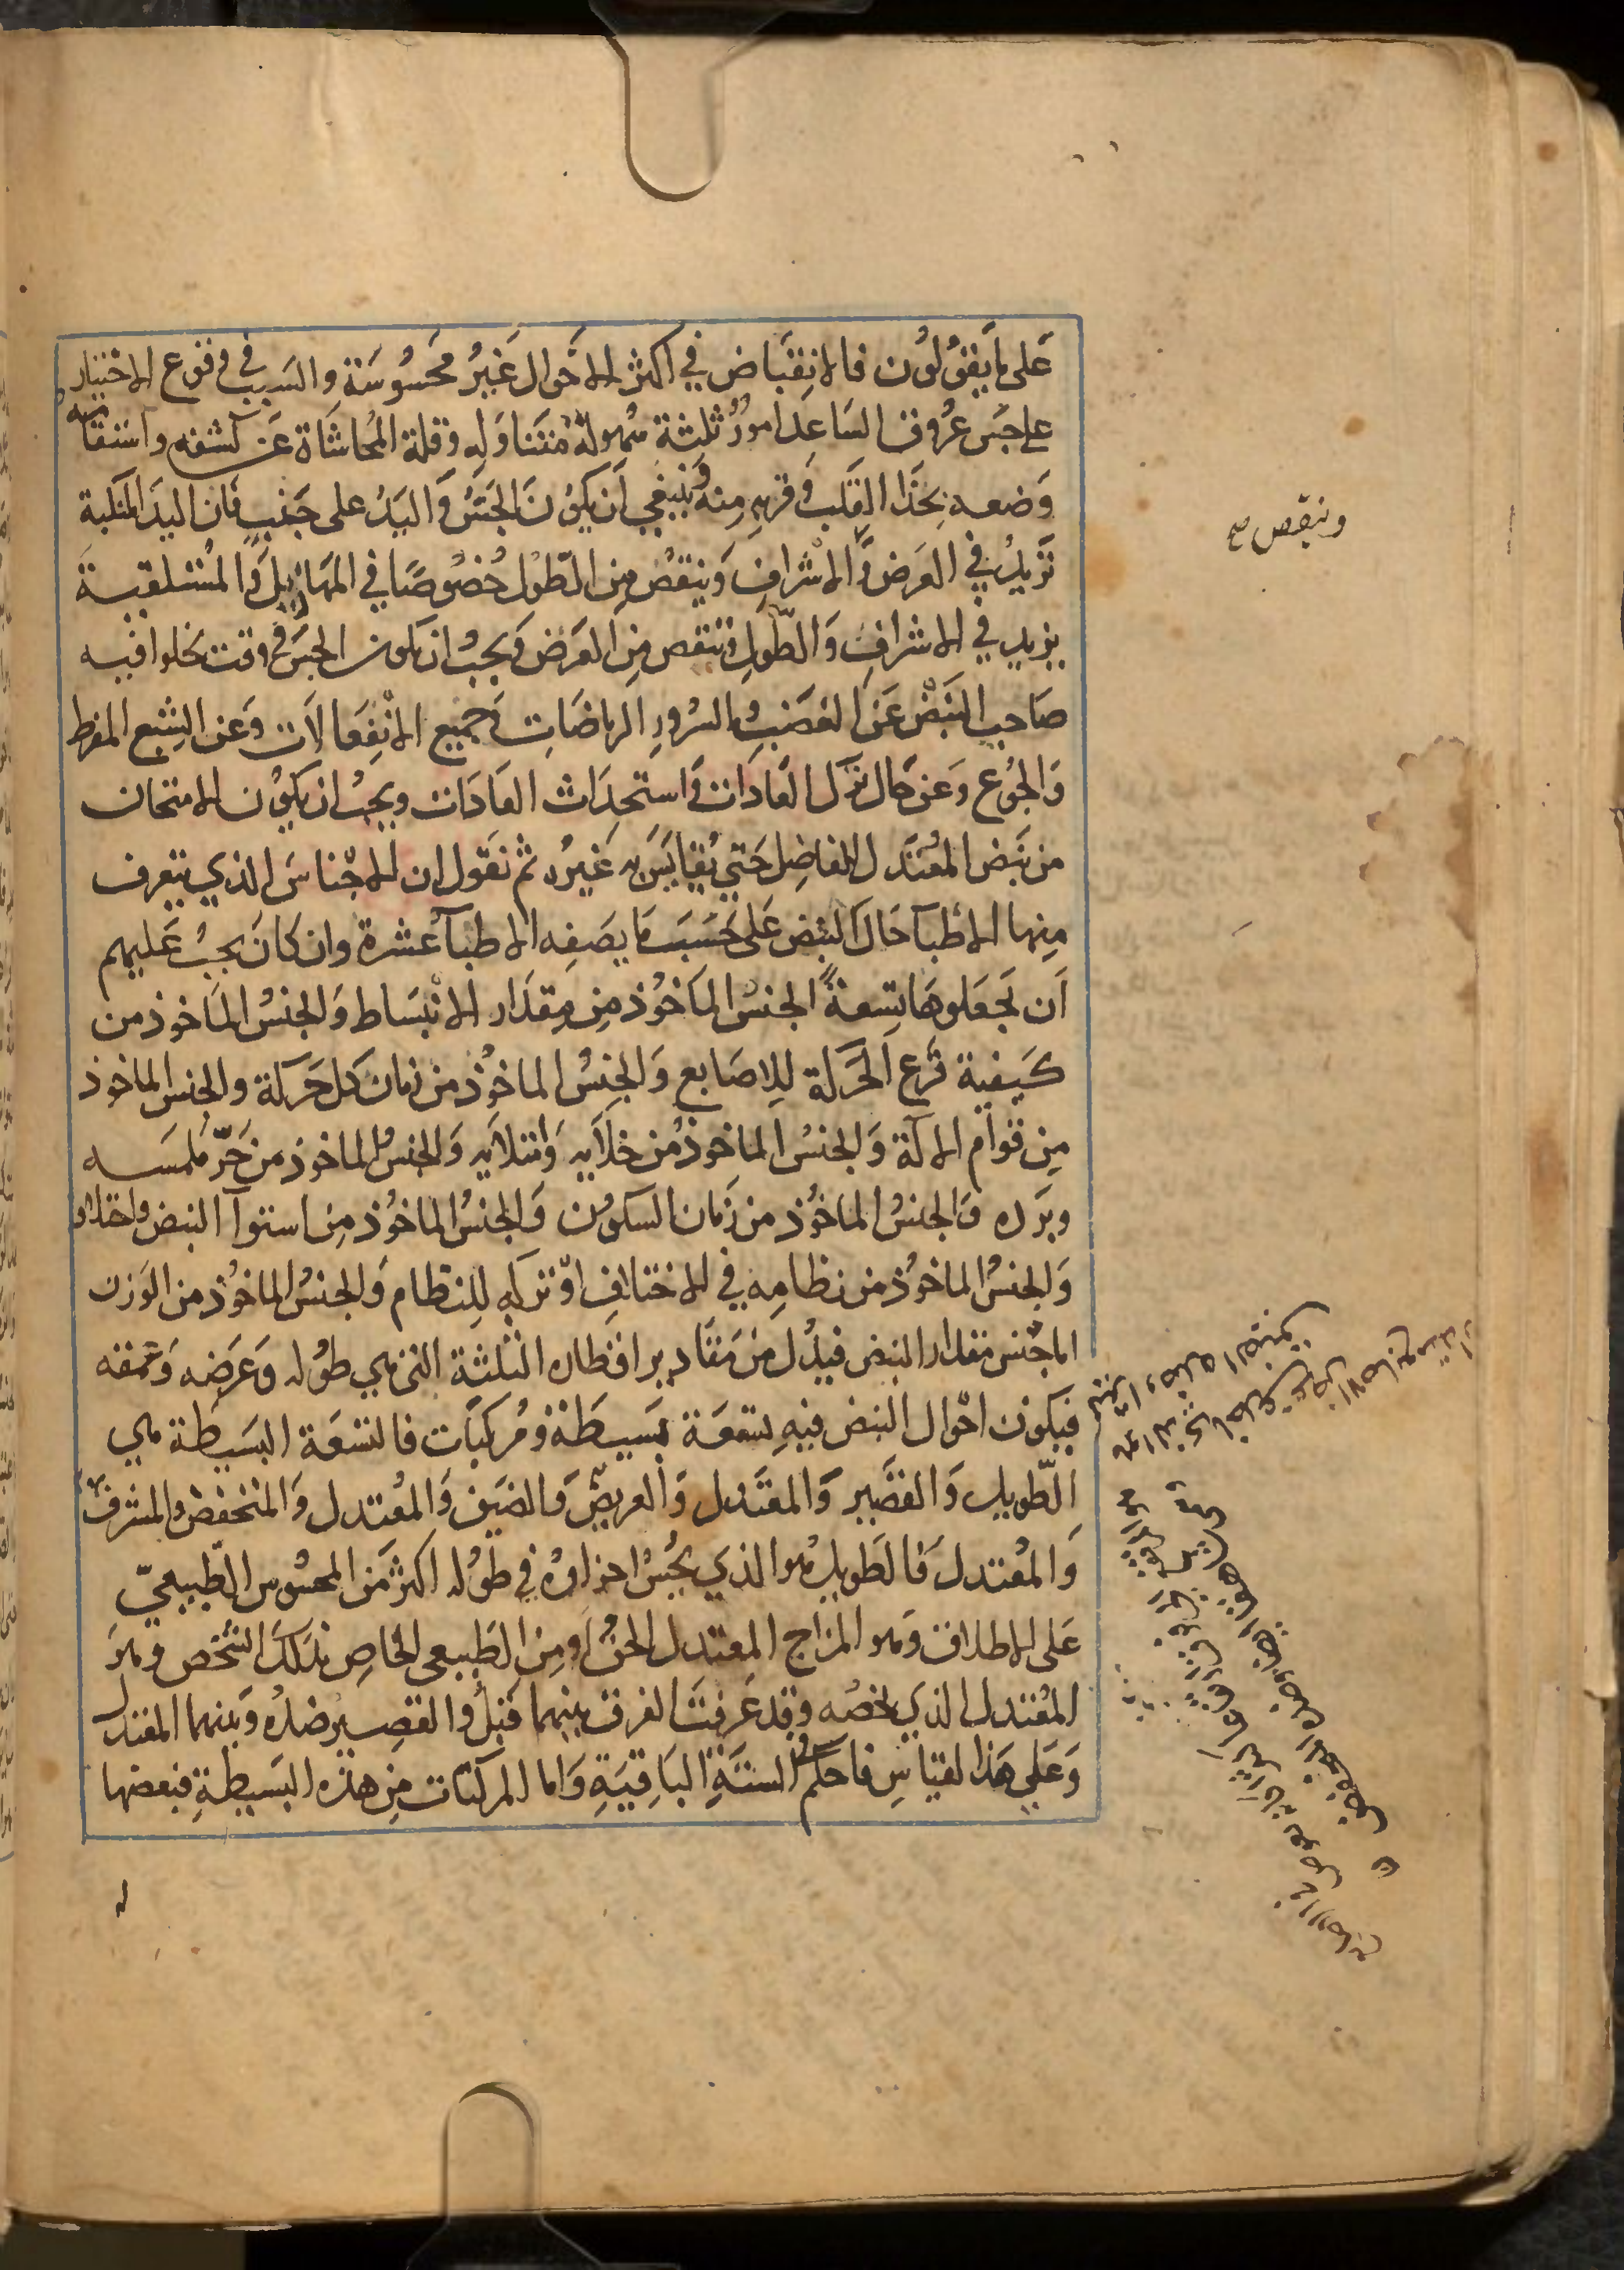 عَلى مَا يَقُولُون فالانقبَاض في اكثر الاحَوال غَيرُ محسُوسَة والسَبب في وقوع الاختيار
على جسّ عُروق السَاعِد امورٌ ثلثة سُهولة متناوَله وقلة المُحاشَاة عَن كشفه واستقامة
وَضعه بحَذا القلب وقربه مِنه وَينبغي اَن يكوُن الجَسُّ وَاليَدُ على جَنب فان اليدَ المتكئة
تَزيدُ في العَرض وَالاشرافِ وَينقصُ مِن الطّول خُصُوصًا في المهَازيل وَالمُستلقية
يزيد في الاشرافِ وَالطّولِ وتنقص مِن العَرض وَيجبُ ان يكون الجسّ في وقت يخلوا فيه
صَاحِب النَبض عَن الغضَبِ والسُرورِ الرياضَاتِ وَجميع الانْفِعَالاَت وَعَن الشِبع المفرط
وَالجُوع وَعَن حَال ترَك العَادَات وَاستحدَاث العَادَات ويجبُ ان يكوُن الامتحان
من نَبَض المُعتَدل الفاضِل حَتي يُقايَسَ به غَيرُه ثم نقول ان الاجْناسَ الذي يتعرف
مِنها الاطبّآ حَالَ النبض عَلى حَسَبَ مَا يصَفِه الاطبآ عَشرة وان كانَ يجبُ عَليهم
اَن يجعَلوهَا تِسعَةً الجنسُ الماَخوُذ مِن مِقدَار الانْبسَاط وَالجنسُ المَاخوذ من
كَيفية قَرع الحَركة لِلاصَابع وَالجِنسُ الماخوُذ من زمان كل حَركة والجنس الماخوذ
مِن قوام الآلة وَالجنسُ الماخوذُ من خلاَيه وَامتلاَيه وَالجنسُ الماخوذ من حَرّ مَلمسَه
وبَرده وَالجنسُ الماخوُذ من زَمان السكون وَالجنسُ الماخوُذ مِن استوآ النبض واختلاف
وَالجنسُ الماخوُذ من نظامِه في الاختلافِ اوْ تركهِ لِلنظام وَالجنسُ الماخوُذ من الوَزن
اما جْنس مقدار النبض فيدُل مِنْ مَقَادير اقطاره الثلثة التي هي طوُله وَعَرَضِه وَعُمقه
فيكون احْوال النبض فيهِ تسْعَة بَسيطَةٌ ومُركبَات فالتسعَة البسَيطَة هي
الطّويل وَالقصَير وَالمعتَدل وَالعريض وَالضَيق وَالمُعتدل وَالمنخفض والمشرف
وَالمُعتدلَ فالطويل هُوا الذي يحُسُ اجزاوُه في طوُله اكثر مَن المحسُوس الطّبيعيّ
عَلى الاطلاق وَهو المزَاج المعتدل الحقُ اَو مِن الطَبيعى الخاصِ بذلكَ الشخص وهوَ
المُعتدل الذي يخصُه وقد عَرفتَ الفرق بينهما قبلُ والقصير ضدُه وَبينهما المعتدل
وَعَلي هَذا لقيَاسِ فاحكم في السَتَةِ البَاقيَةِ وَاما المركبَات مِن هذه البَسيطةِ فبعضها
وينقص صح